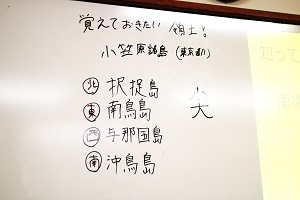 覚えておきたい 領土!
小笠原諸島(東京都)
北 択捉島
東 南鳥島
西 与那国島
南 沖鳥島
尖
知って